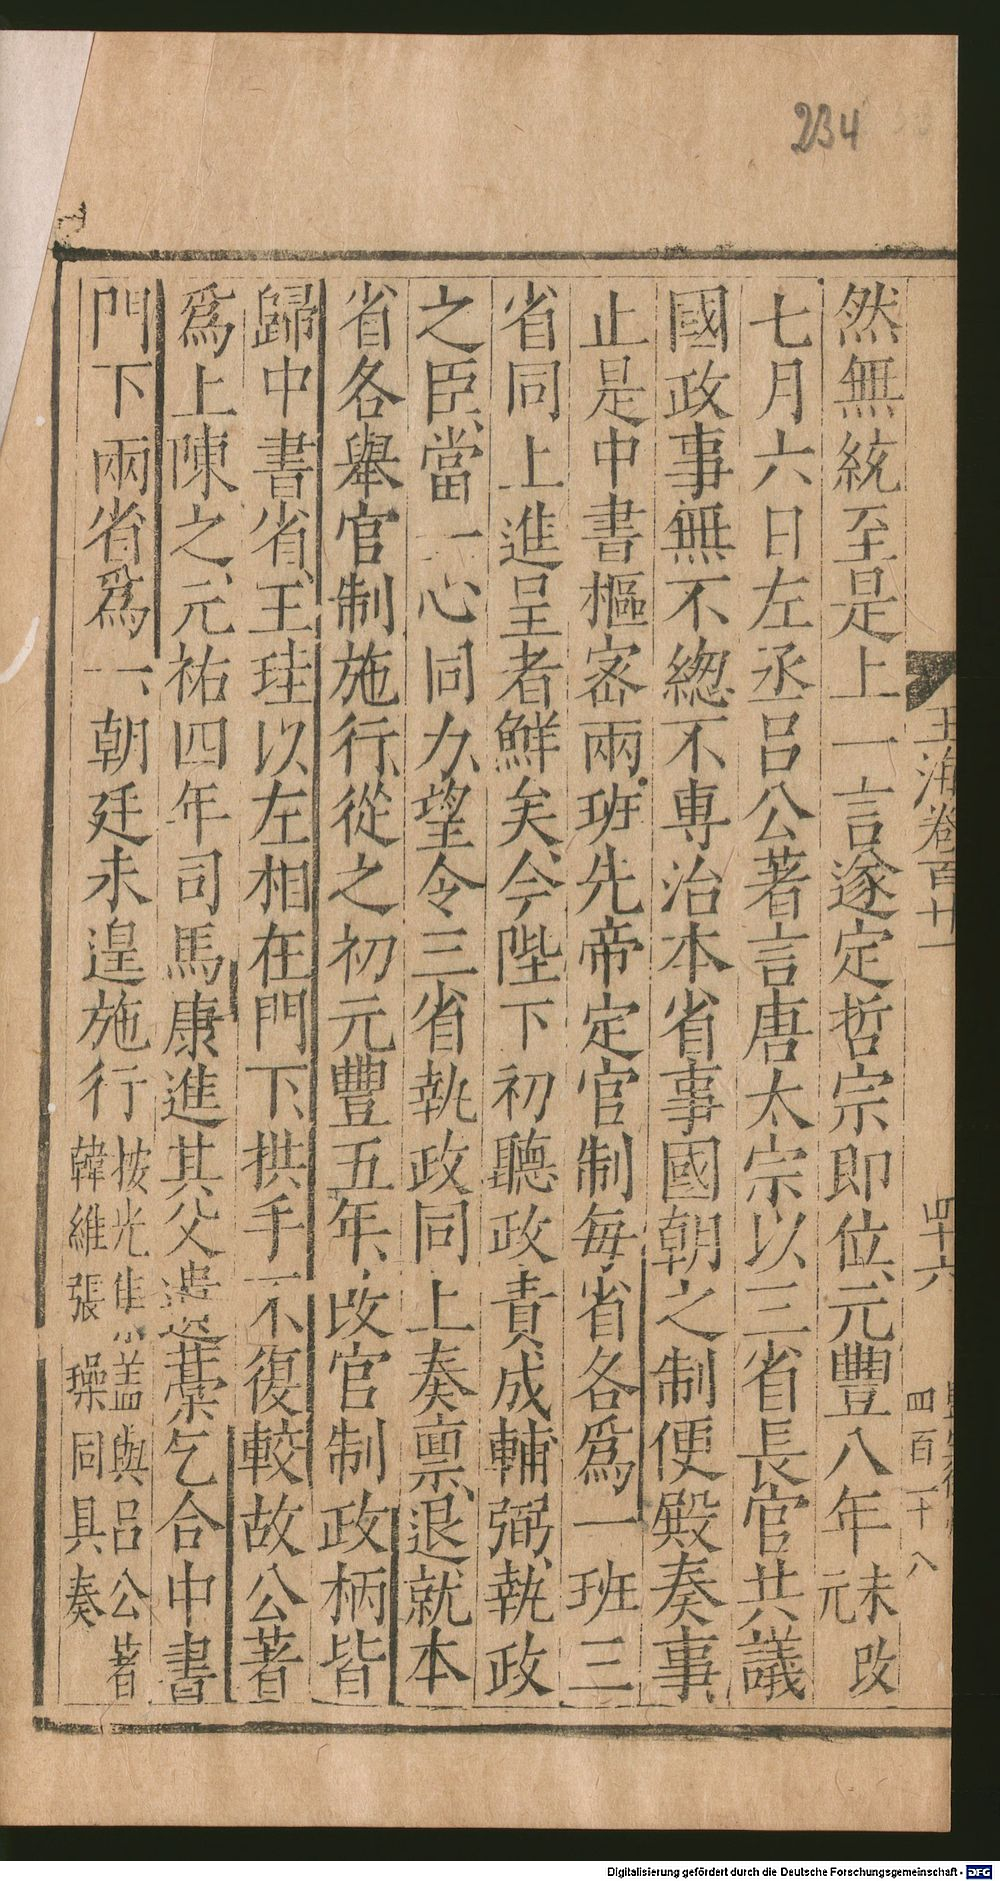 234
玉海卷百廿一
四十六
四百二十八
然無統至是上一言遂定哲宗即位元豐八年未改元
七月六日左丞呂公著言唐太宗以三省長官共議
國政事無不緫不專治本省事國朝之制便殿奏事
止是中書樞密兩班先帝定官制每省各爲一班三
省同上進呈者鮮矣今陛下初聽政責成輔弼執政
之臣當一心同力望令三省執政同上奏稟退就本
省各舉官制施行從之初元豐五年改官制政柄皆
歸中書省王珪以左相在門下拱手不復較故公著
爲上陳之元祐四年司馬康進其父遺藁乞合中書
門下兩省爲一朝廷未遑施行
按光集蓋與呂公著
韓維張璪同具奏
Digitalisierung gefördert durch die Deutsche Forschungsgemeinschaft - DFG